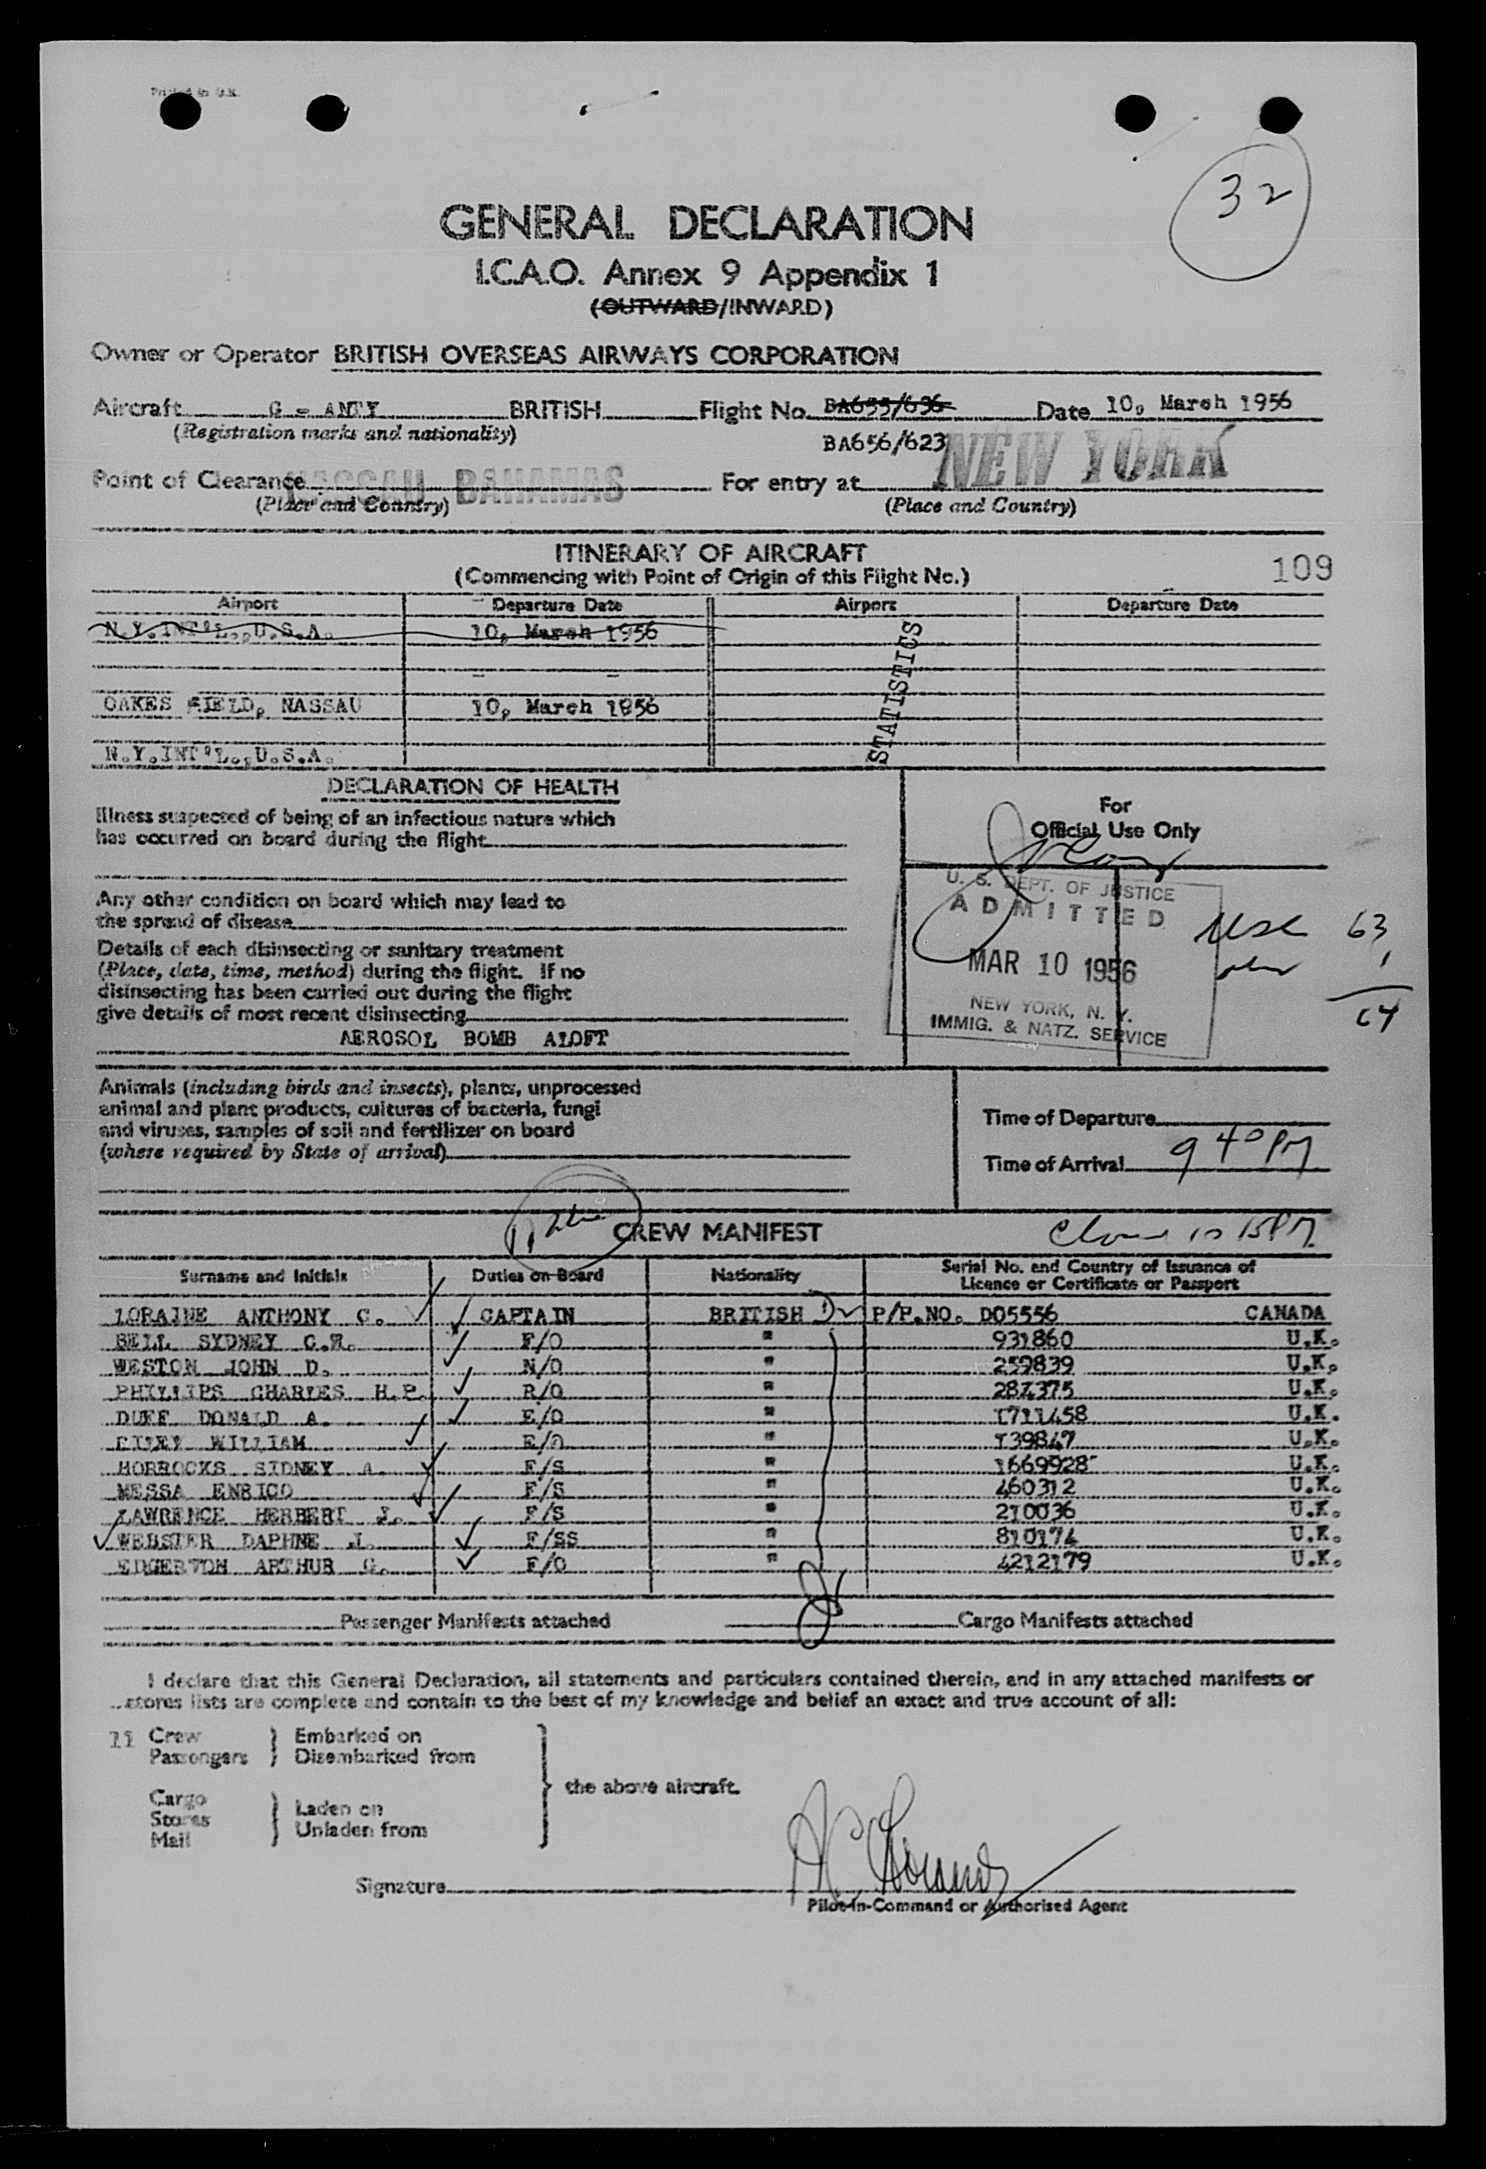 Printed in U.K.
32
GENERAL DECLARATION
I.C.A.O. Annex 9 Appendix 1
(OUTWARD/INWARD)
Owner or Operator BRITISH OVERSEAS AIRWAYS CORPORATION
Aircraft G - ANTY BRITISH Flight No. BA655/656 Date 10, March 1956
(Registration marks and nationality)
BA656/623
Point of Clearance NASSAU BAHAMAS For entry at NEW YORK
(Place and Country) (Place and Country)
ITINERARY OF AIRCRAFT
(Commencing with Point of Origin of this Flight No.)
109
Airport Departure Date Airport Departure Date
N.Y.INT'L.,U.S.A. 10, March 1956
STATISTICS
OAKES FIELD, NASSAU 10, March 1956
N.Y.INT'L.,U.S.A.
DECLARATION OF HEALTH
Illness suspected of being of an infectious nature which
has occurred on board during the flight
For
Official Use Only
Any other condition on board which may lead to
the spread of disease
Details of each disinsecting or sanitary treatment
(Place, date, time, method) during the flight. If no
disinsecting has been carried out during the flight
give details of most recent disinsecting
AEROSOL BOMB ALOFT
U. S. DEPT. OF JUSTICE
ADMITTED
MAR 10 1956
NEW YORK, N. Y.
IMMIG. & NATZ. SERVICE
USC 63
1
64
Animals (including birds and insects), plants, unprocessed
animal and plant products, cultures of bacteria, fungi
and viruses, samples of soil and fertilizer on board
(where required by State of arrival)
Time of Departure
Time of Arrival 9 40 PM
CREW MANIFEST
10 15 PM
Surname and Initials Duties on Board Nationality Serial No. and Country of Issuance of
Licence or Certificate or Passport
LORAINE ANTHONY C. CAPTAIN BRITISH P/P.NO. DO5556 CANADA
BELL SYDNEY C.W. F/O " 931860 U.K.
WESTON JOHN D. N/O " 259839 U.K.
PHILLIPS CHARLES H.P. R/O " 287375 U.K.
DUFF DONALD A. E/O " 1711458 U.K.
RILEY WILLIAM E/O " 139847 U.K.
HORROCKS SIDNEY A. F/S " 1669928 U.K.
MESSA ENRICO F/S " 460312 U.K.
LAWRENCE HERBERT J. F/S " 210036 U.K.
WEBSTER DAPHNE J. F/SS " 810174 U.K.
EDGERTON ARTHUR G. F/O " 4212179 U.K.
Passenger Manifests attached Cargo Manifests attached
I declare that this General Declaration, all statements and particulars contained therein, and in any attached manifests or
stores lists are complete and contain to the best of my knowledge and belief an exact and true account of all:
11 Crew Embarked on
Passengers Disembarked from
the above aircraft.
Cargo
Stores Laden on
Mail Unladen from
Signature
Pilot-in-Command or Authorised Agent